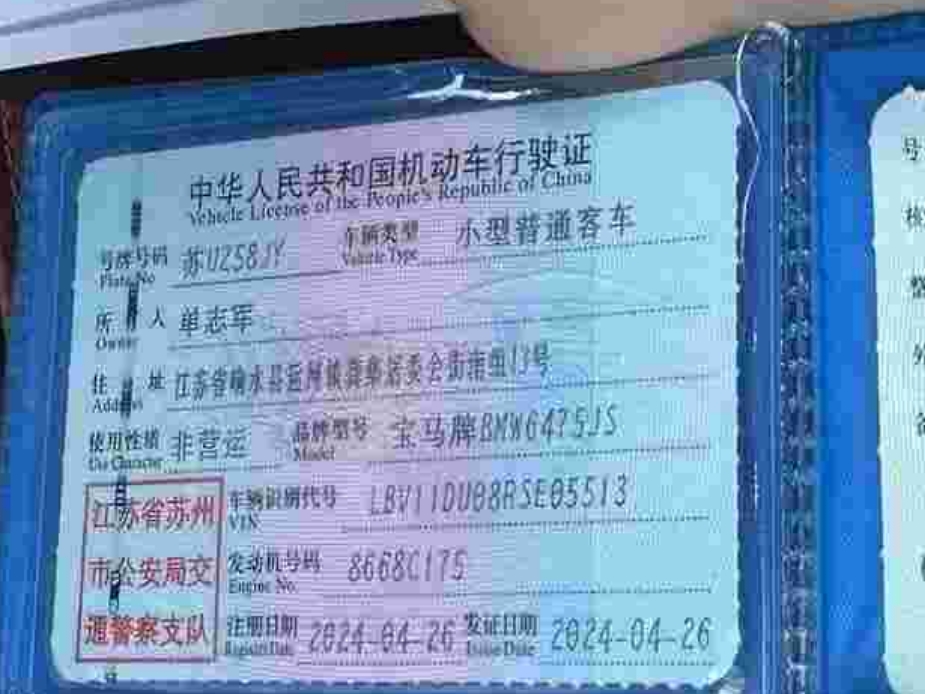 中华人民共和国机动车行驶证
Vehicle License of the People's Republic of China
号牌号码 苏UZ58JY 车辆类型 小型普通客车
Plate No Vehicle Type
所有人 单志军
Owner
住址 江苏省 县 镇 居委会街南组13号
Address
使用性质 非营运 品牌型号 宝马牌BMW6475JS
Use Character Model
江苏省苏州 车辆识别代号 LBV11DU08RSE05513
VIN
市公安局交 发动机号码 8668C175
Engine No.
通警察支队 注册日期 2024-04-26 发证日期 2024-04-26
Register Date Issue Date
号